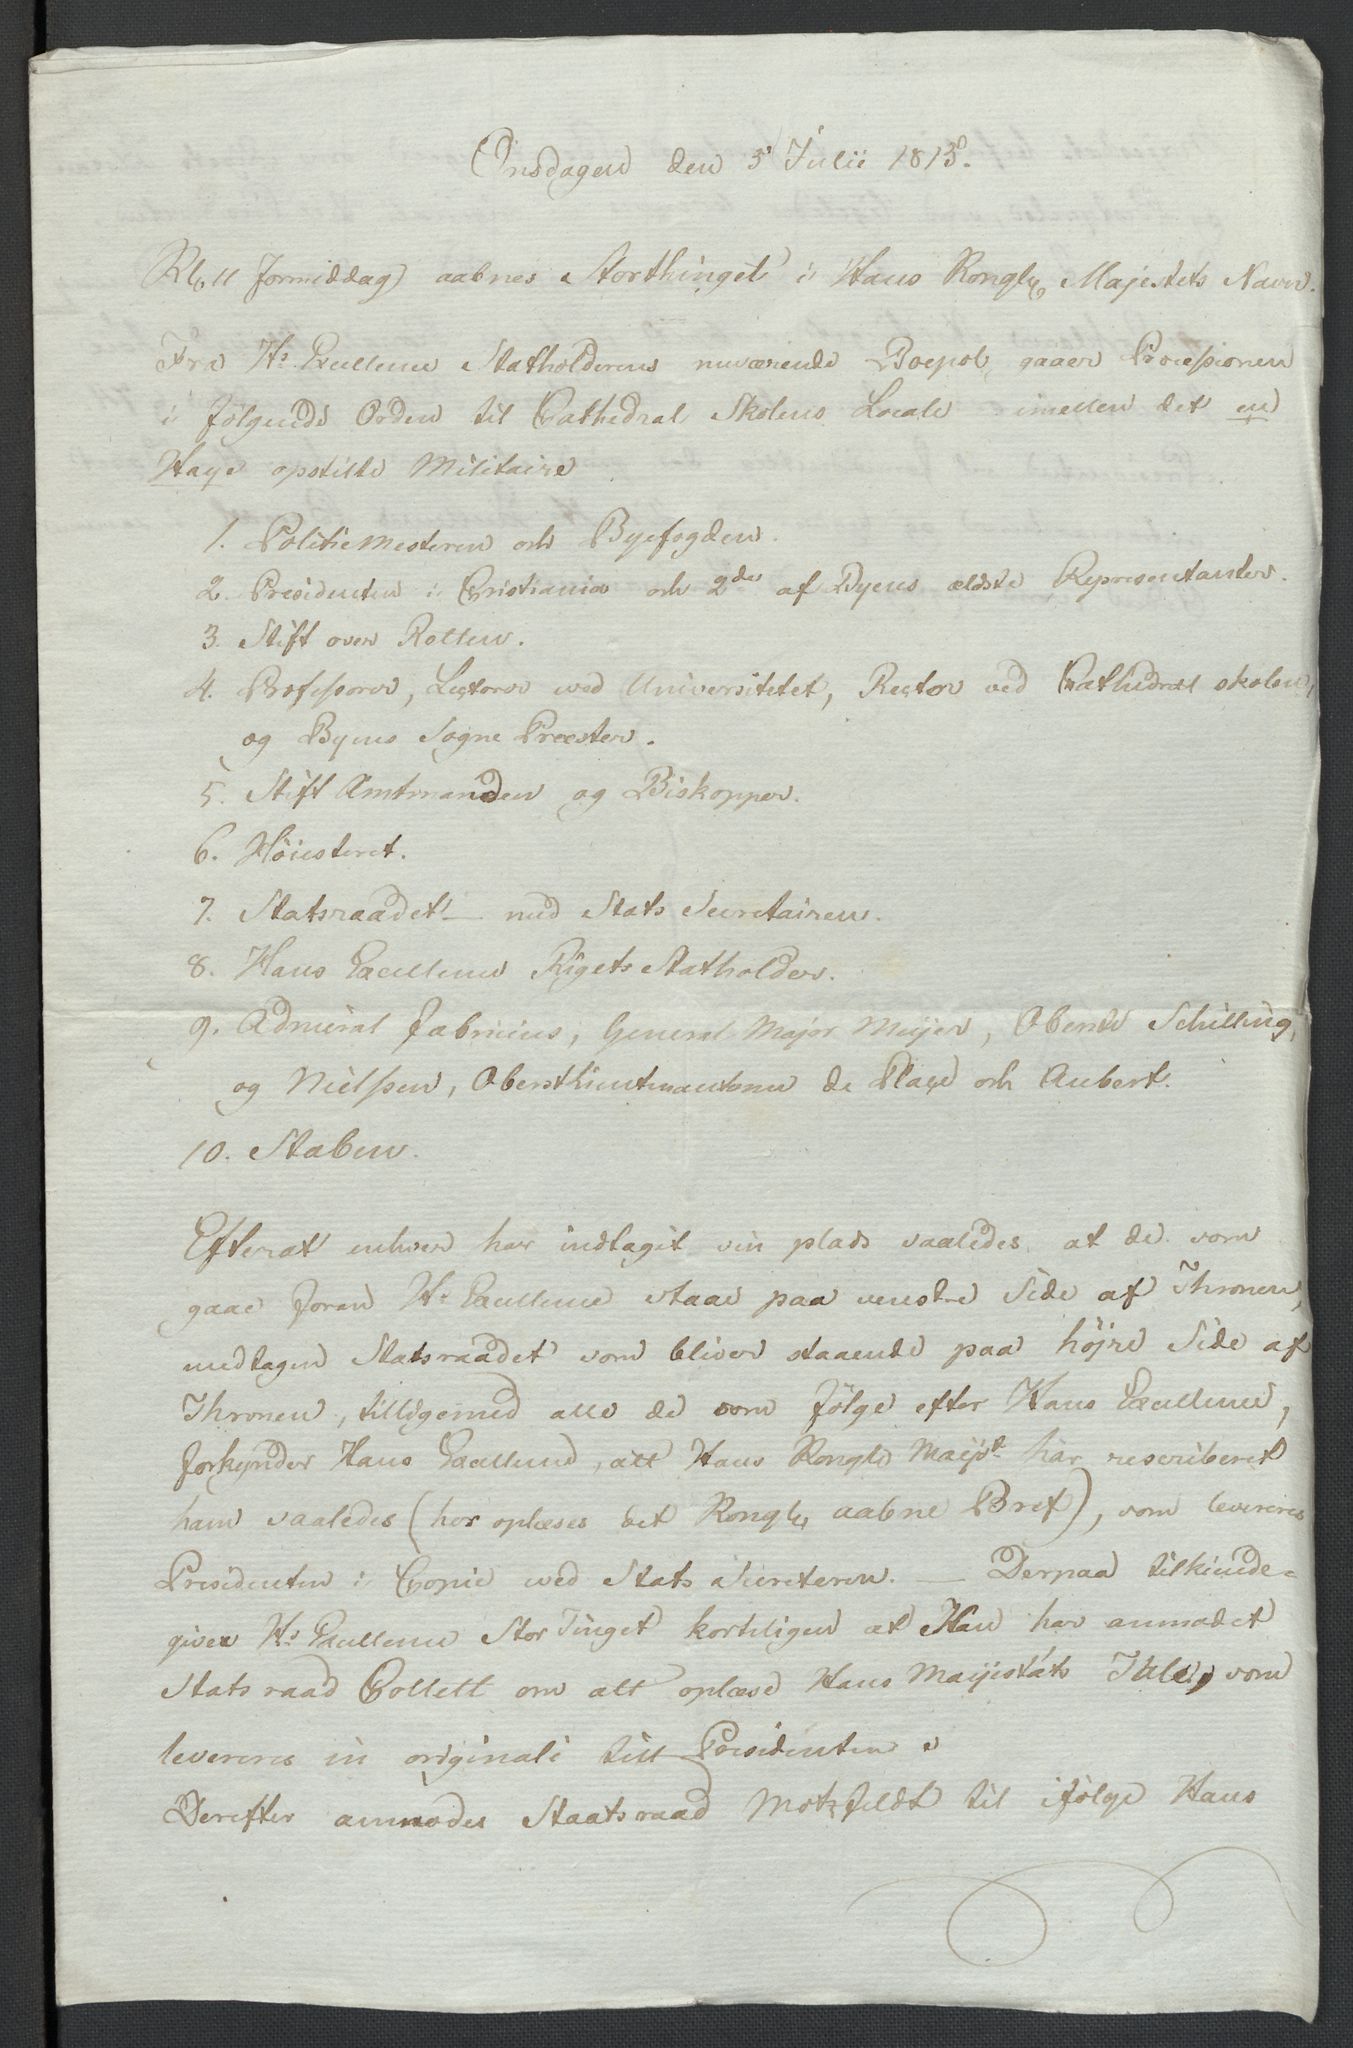 Onsdagen den 5 Julii 1815.
Kl. 11 formiddag aabnes Storthinget i Hans Kongle Majestets Navn.
Fra Hs Excellence Statholderens nuværende Boepæl, gaaer Processionen
i følgende Orden til Cathedral Skolens Locale imellem det en
Haye opstilte Militaire
1. Politiemesteren och Byefogden.
2. Presidenten i Cristiania och 2de af Byens ældste Representanter.
3. Stift over Retten.
4. Professorer, Lectorer wed Universitetet, Rector ved Cathedral skolen,
og Byens Sogne Præster.
5. Stift Amtmanden og Biskopper.
6. Höiesteret.
7. Statsraadet med Stats Secretairen.
8. Hans Excellence Rigets Statholder.
9. Admiral Fabricius, General Major Meijer, Oberste Schilling,
og Nielssen, Oberstlieutnanterne de Flage och Aubert.
10. Staben.
Efterat enhver har indtagit sin plads saaledes at de som
gaae foran Hs Excellence staae paa venstre Side af Thronen,
medtagen Statsraadet som bliver staaende paa höjre Side af
Thronen, tilligemed alle de som fölge efter Hans Excellence,
forkynder Hans Excellence, att Hans Kongle Maijst har rescriberet
ham saaledes (her oplæses det Kongle aabne Bref), som leveres
Presidenten i Copie wed Stats Secreteren. — Derpaa tilkiende-
giver Hs Excellence Stor Tinget korteligen at Han har anmodet
Stats raad Collett om att oplæse Hans Maijestäts Tale, som
leveres in originali till Presidenten
Derefter anmodes Staatsraad Motzfeldt til ifølge Hans